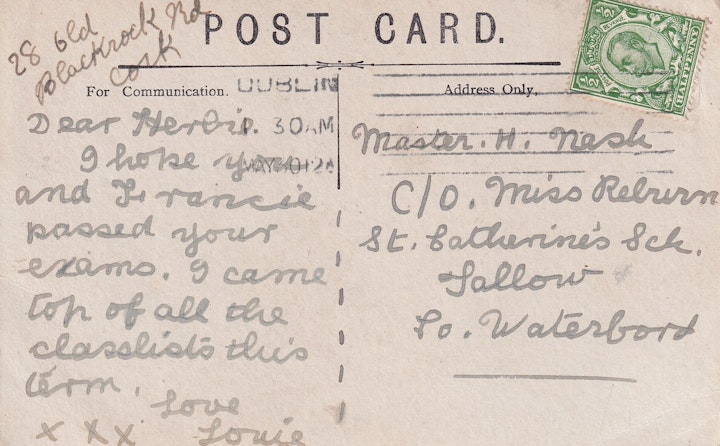 28 Old
Blackrock Rd
Cork
POST CARD.
For Communication.
Address Only.
DUBLIN
1. 30AM
MAY 4 012
½ ½
Dear Herbie.
I hope you
and Francie
passed your
exams. I came
top of all the
classlists this
term.
Love
x x x Louie
Master. H. Nash
C/O. Miss Reburn
St. Catherine's Sch.
Tallow
Co. Waterford